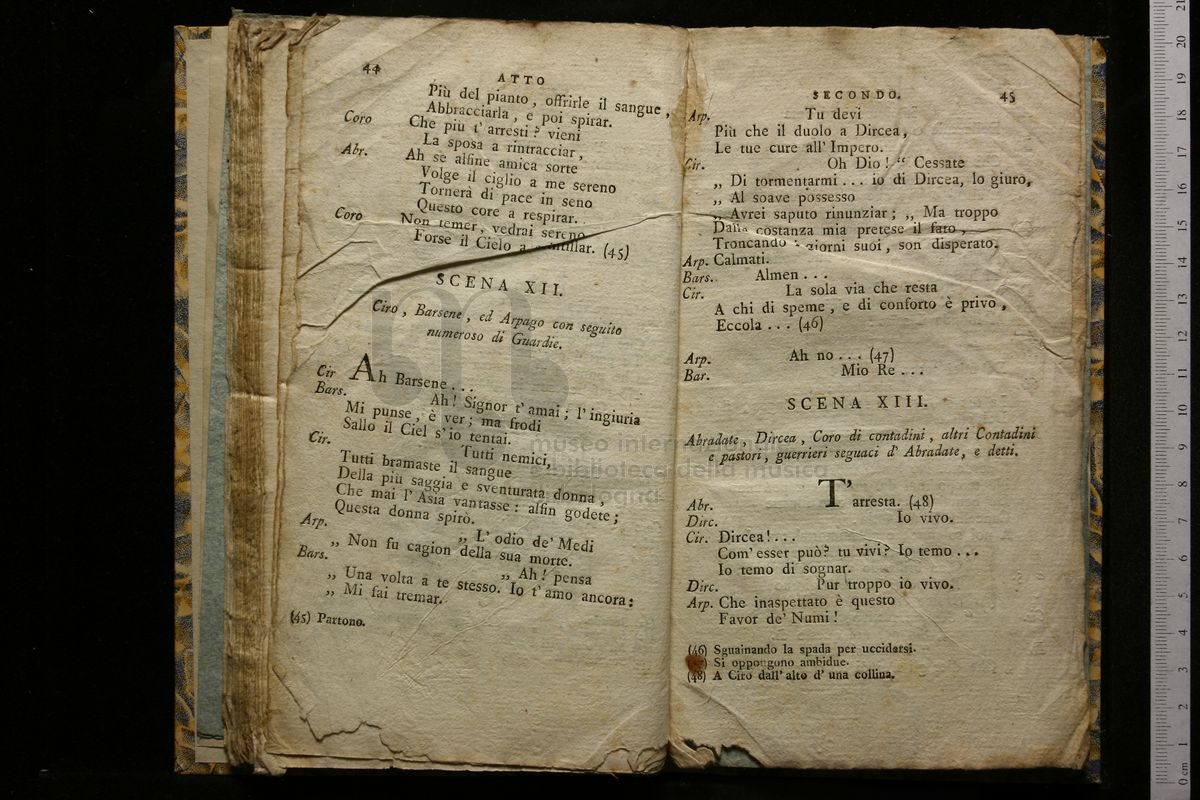 44
ATTO
Più del pianto, offrirle il sangue,
Abbracciarla, e poi spirar.
Coro Che più t' arresti? vieni
La sposa a rintracciar,
Abr. Ah se alfine amica sorte
Volge il ciglio a me sereno
Tornerà di pace in seno
Questo core a respirar.
Coro Non temer, vedrai sereno
Forse il Cielo a (45)
SCENA XII.
Ciro, Barsene, ed Arpago con seguito
numeroso di Guardie.
Cir Ah Barsene...
Bars. Ah! Signor t' amai; l' ingiuria
Mi punse, è ver; ma frodi
Sallo il Ciel s' io tentai.
Cir. Tutti nemici,
Tutti bramaste il sangue
Della più saggia e sventurata donna,
Che mai l' Asia vantasse: alfin godete;
Questa donna spirò.
Arp. „ L' odio de' Medi
„ Non fu cagion della sua morte.
Bars. „ Ah! pensa
„ Una volta a te stesso. Io t' amo ancora:
„ Mi fai tremar.
(45) Partono.
SECONDO. 45
Arp. Tu devi
Più che il duolo a Dircea,
Le tue cure all' Impero.
Cir. Oh Dio! “ Cessate
„ Di tormentarmi... io di Dircea, lo giuro,
„ Al soave possesso
„ Avrei saputo rinunziar; „ Ma troppo
Dalla costanza mia pretese il fato,
Troncando giorni suoi, son disperato.
Arp. Calmati.
Bars. Almen...
Cir. La sola via che resta
A chi di speme, e di conforto è privo,
Eccola... (46)
Arp. Ah no... (47)
Bar. Mio Re...
SCENA XIII.
Abradate, Dircea, Coro di contadini, altri Contadini
e pastori, guerrieri seguaci d' Abradate, e detti.
Abr. T' arresta. (48)
Dirc. Io vivo.
Cir. Dircea!...
Com' esser può? tu vivi? Io temo...
Io temo di sognar.
Dirc. Pur troppo io vivo.
Arp. Che inaspettato è questo
Favor de' Numi!
(46) Sguainando la spada per uccidersi.
Si oppongono ambidue.
(48) A Ciro dall' alto d' una collina.
museo internazionale
e biblioteca della musica
bologna
0 cm 1 2 3 4 5 6 7 8 9 10 11 12 13 14 15 16 17 18 19 20 21